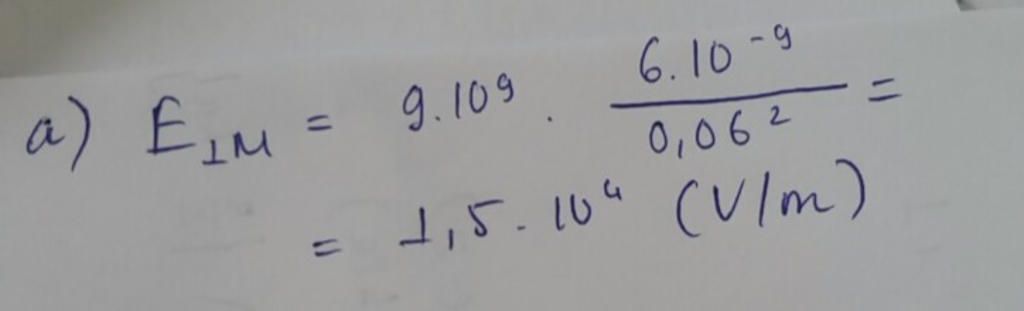 a) E₁M = 9.10⁹ . 6.10⁻⁹ / 0,06² =
= 1,5.10⁴ (V/m)